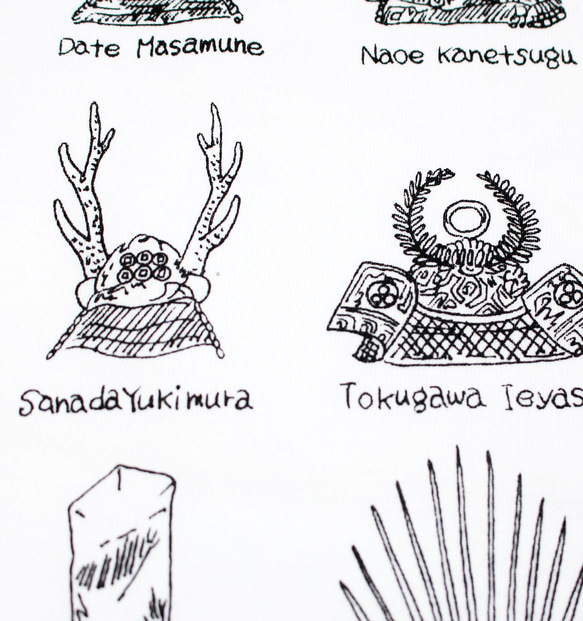 Date Masamune
Naoe Kanetsugu
Sanada Yukimura
Tokugawa Ieyas